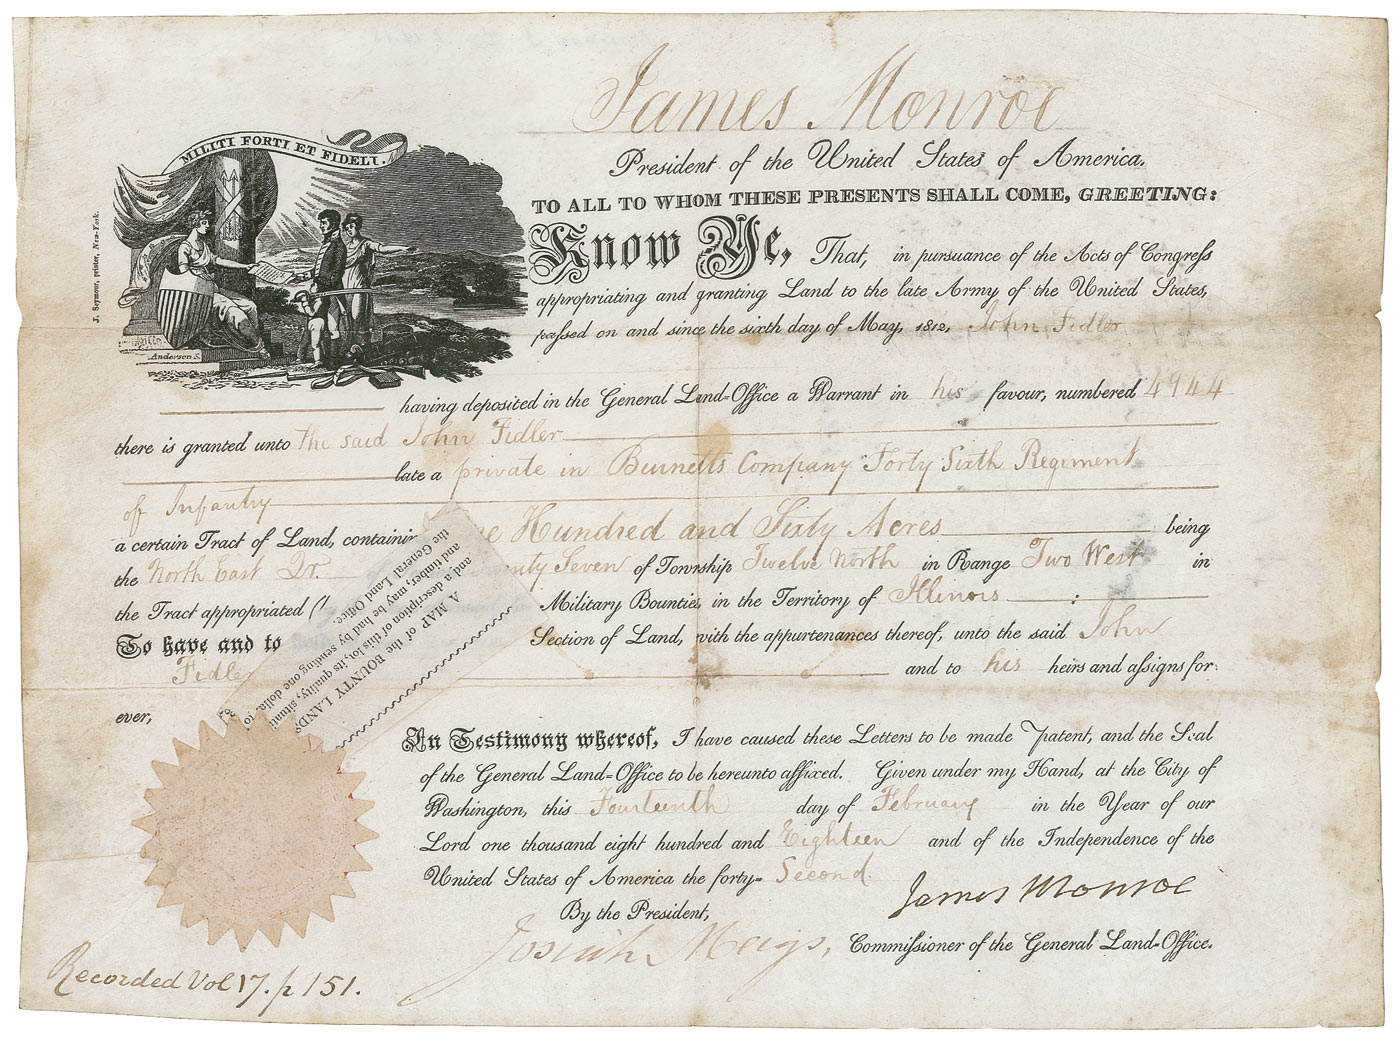 James Monroe
President of the United States of America.
MILITI FORTI ET FIDELI.
TO ALL TO WHOM THESE PRESENTS SHALL COME, GREETING:
Know Ye, That, in pursuance of the Acts of Congress
appropriating and granting Land to the late Army of the United States,
passed on and since the sixth day of May, 1812, John Fidler
J. Seymour, printer, New-York.
Anderson S.
having deposited in the General Land-Office a Warrant in his favour, numbered 4944
there is granted unto the said John Fidler
late a private in Burnetts Company Forty Sixth Regiment
of Infantry
a certain Tract of Land, containin Hundred and Sixty Acres being
the North East Qr. nty Seven of Township Twelve North in Range Two West in
the Tract appropriated ( Military Bounties, in the Territory of Illinois :
To have and to Section of Land, with the appurtenances thereof, unto the said John
Fidler and to his heirs and assigns for
ever,
A MAP of the BOUNTY LAND
and a description of this lot, its quality, situati
and timber, may be had by sending one dolla to
the General Land Office.
In Testimony whereof, I have caused these Letters to be made Patent, and the Seal
of the General Land-Office to be hereunto affixed. Given under my Hand, at the City of
Washington, this Fourteenth day of February in the Year of our
Lord one thousand eight hundred and Eighteen and of the Independence of the
United States of America the forty- Second.
James Monroe
By the President,
Josiah Meigs, Commissioner of the General Land-Office.
Recorded Vol 17. p 151.